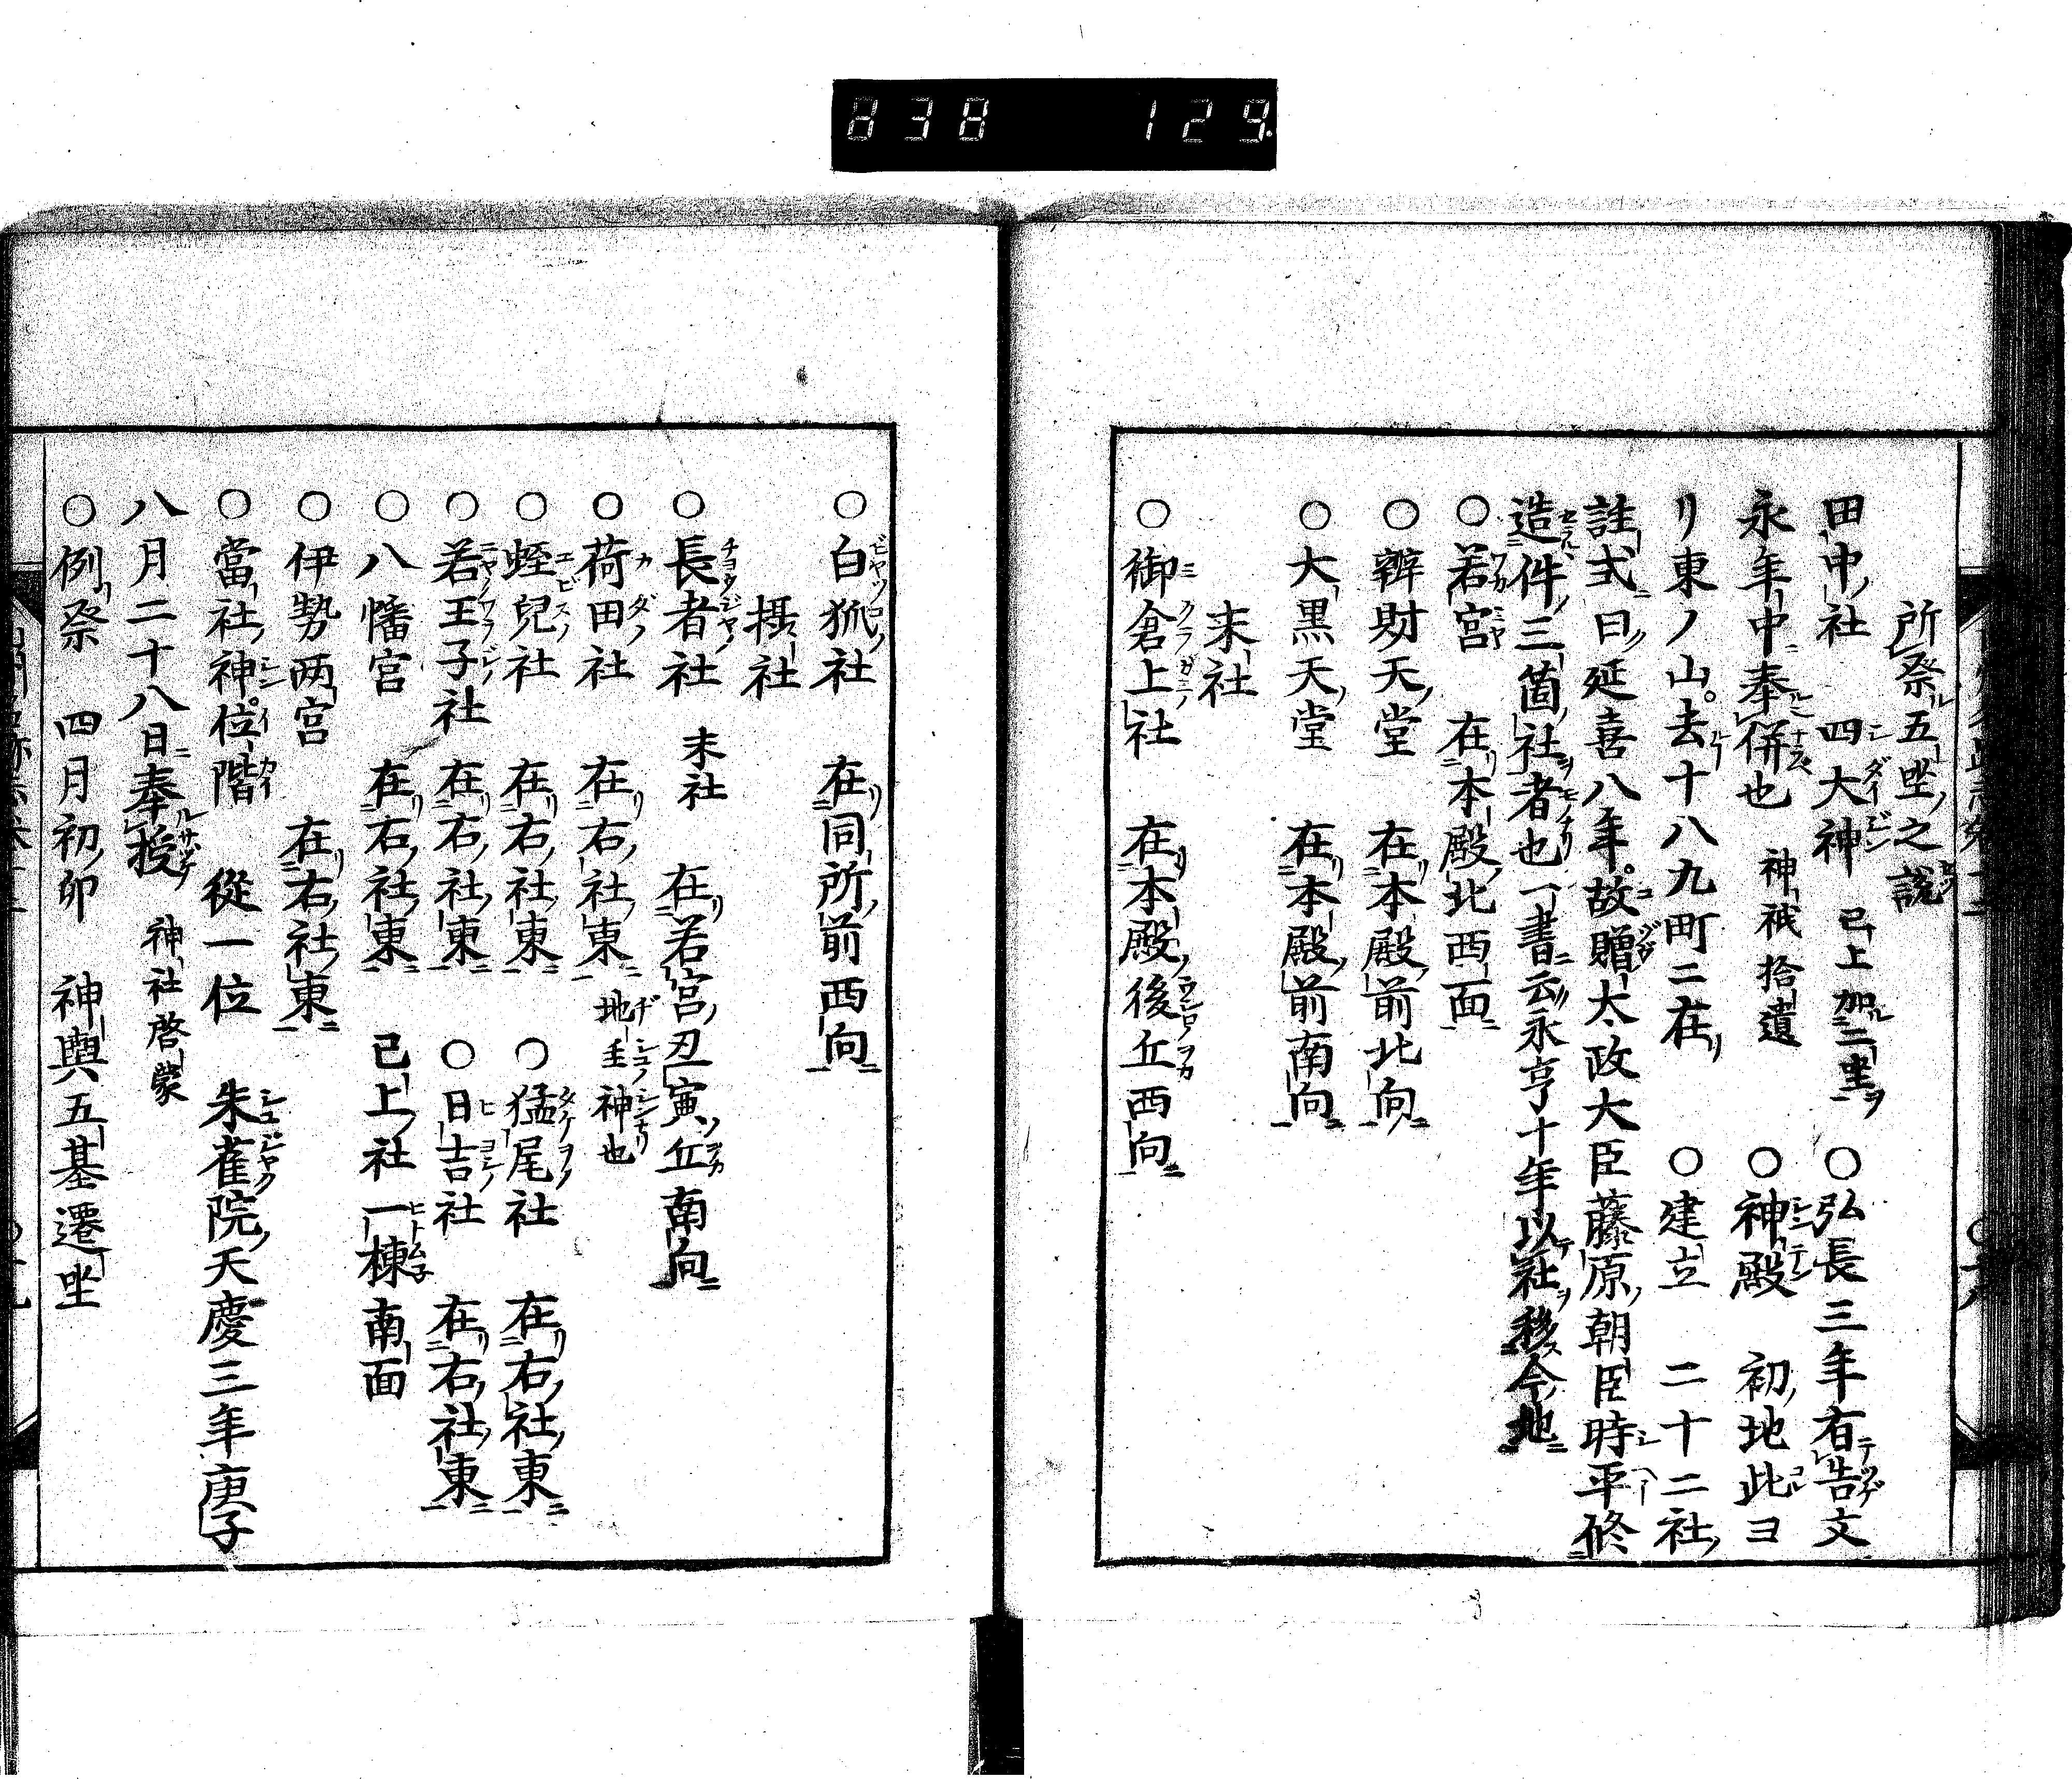 838 129
所祭五坐之說
田中社 四大神 已上加二坐ヲ ○弘長三年有告文
永年中奉併也 神祇拾遺 ○神殿 初地此ヨ
リ東ノ山去十八九町ニ在 ○建立 二十二社
註式曰延喜八年故贈太政大臣藤原朝臣時平修
造件三箇社者也一書云永亨十年以社移今地
○若宮 在本殿北西面
○辨財天堂 在本殿前北向
○大黒天堂 在本殿前南向
末社
○御倉上社 在本殿後丘西向
○白狐社 在同所前西向
攝社
○長者社 末社 在若宮丑寅丘南向
○荷田社 在右社東 地主神也
○蛭兒社 在右社東 ○猛尾社 在右社東
○若王子社 在右社東 ○日吉社 在右社東
○八幡宮 在右社東 已上社一棟南面
○伊勢两宮 在右社東
○當社神位階 從一位 朱雀院天慶三年庚子
八月二十八日奉授 神社啓蒙
○例祭 四月初卯 神輿五基遷坐